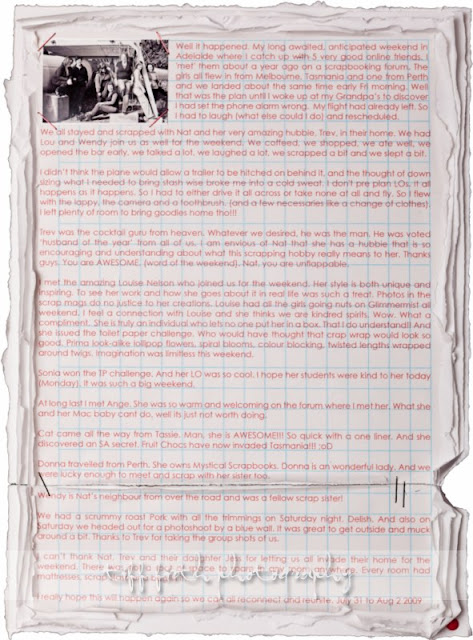 Well it happened. My long awaited, anticipated weekend in
Adelaide where I catch up with 5 very good online friends. I
'met' them about a year ago on a scrapbooking forum. The
girls all flew in from Melbourne, Tasmania and one from Perth
and we landed about the same time early Fri morning. Well
that was the plan until I woke up at my Grandpa's to discover
I had set the phone alarm wrong. My flight had already left. So
I had to laugh (what else could I do) and rescheduled.
We all stayed and scrapped with Nat and her very amazing hubbie, Trev, in their home. We had
Lou and Wendy join us as well for the weekend. We coffeed, we shopped, we ate well, we
opened the bar early, we talked a lot, we laughed a lot, we scrapped a bit and we slept a bit.
I didn't think the plane would allow a trailer to be hitched on behind it, and the thought of down
sizing what I needed to bring stash wise broke me into a cold sweat. I don't pre plan LOs. It all
happens as it happens. So I had to either drive it all across or take none at all and fly. So I flew
with the lappy, the camera and a toothbrush. (and a few necessaries like a change of clothes).
I left plenty of room to bring goodies home tho!!!
Trev was the cocktail guru from heaven. Whatever we desired, he was the man. He was voted
'husband of the year' from all of us. I am envious of Nat that she has a hubbie that is so
encouraging and understanding about what this scrapping hobby really means to her. Thanks
guys. You are AWESOME. (word of the weekend). Nat, you are unflappable.
I met the amazing Louise Nelson who joined us for the weekend. Her style is both unique and
inspiring. To see her work and how she goes about it in real life was such a treat. Photos in the
scrap mags do no justice to her creations. Louise had all the girls going nuts on Glimmermist all
weekend. I feel a connection with Louise and she thinks we are kindred spirits. Wow. What a
compliment. She is truly an individual who lets no one put her in a box. That I do understand!! And
she issued the toilet paper challenge. Who would have thought that crap wrap would look so
good. Prima look-alike lollipop flowers, spiral blooms, colour blocking, twisted lengths wrapped
around twigs. Imagination was limitless this weekend.
Sonia won the TP challenge. And her LO was so cool. I hope her students were kind to her today
(Monday). It was such a big weekend.
At long last I met Ange. She was so warm and welcoming on the forum where I met her. What she
and her Mac baby cant do, well its just not worth doing.
Cat came all the way from Tassie. Man, she is AWESOME!!! So quick with a one liner. And she
discovered an SA secret. Fruit Chocs have now invaded Tasmania!!! :oD
Donna travelled from Perth. She owns Mystical Scrapbooks. Donna is an wonderful lady. And we
were lucky enough to meet and scrap with her sister too.
Wendy is Nat's neighbour from over the road and was a fellow scrap sister!
We had a scrummy roast Pork with all the trimmings on Saturday night. Delish. And also on
Saturday we headed out for a photoshoot by a blue wall. It was great to get outside and muck
around a bit. Thanks to Trev for taking the group shots of us.
I can't thank Nat, Trev and their daughter Jas for letting us all inside their home for the
weekend. There
mattresses, scrap
I really hope this will happen again so we can all reconnect and reunite. July 31 to Aug 2 2009
photography